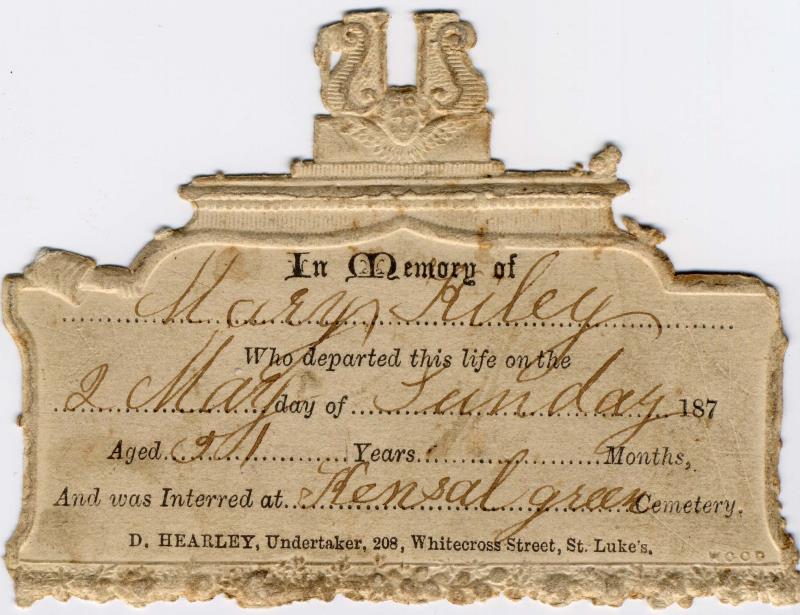 In Memory of
Mary Riley
Who departed this life on the
2 May day of Sunday 187
Aged 21 Years Months,
And was Interred at Kensal green Cemetery.
D. HEARLEY, Undertaker, 208, Whitecross Street, St. Luke's.
WOOD